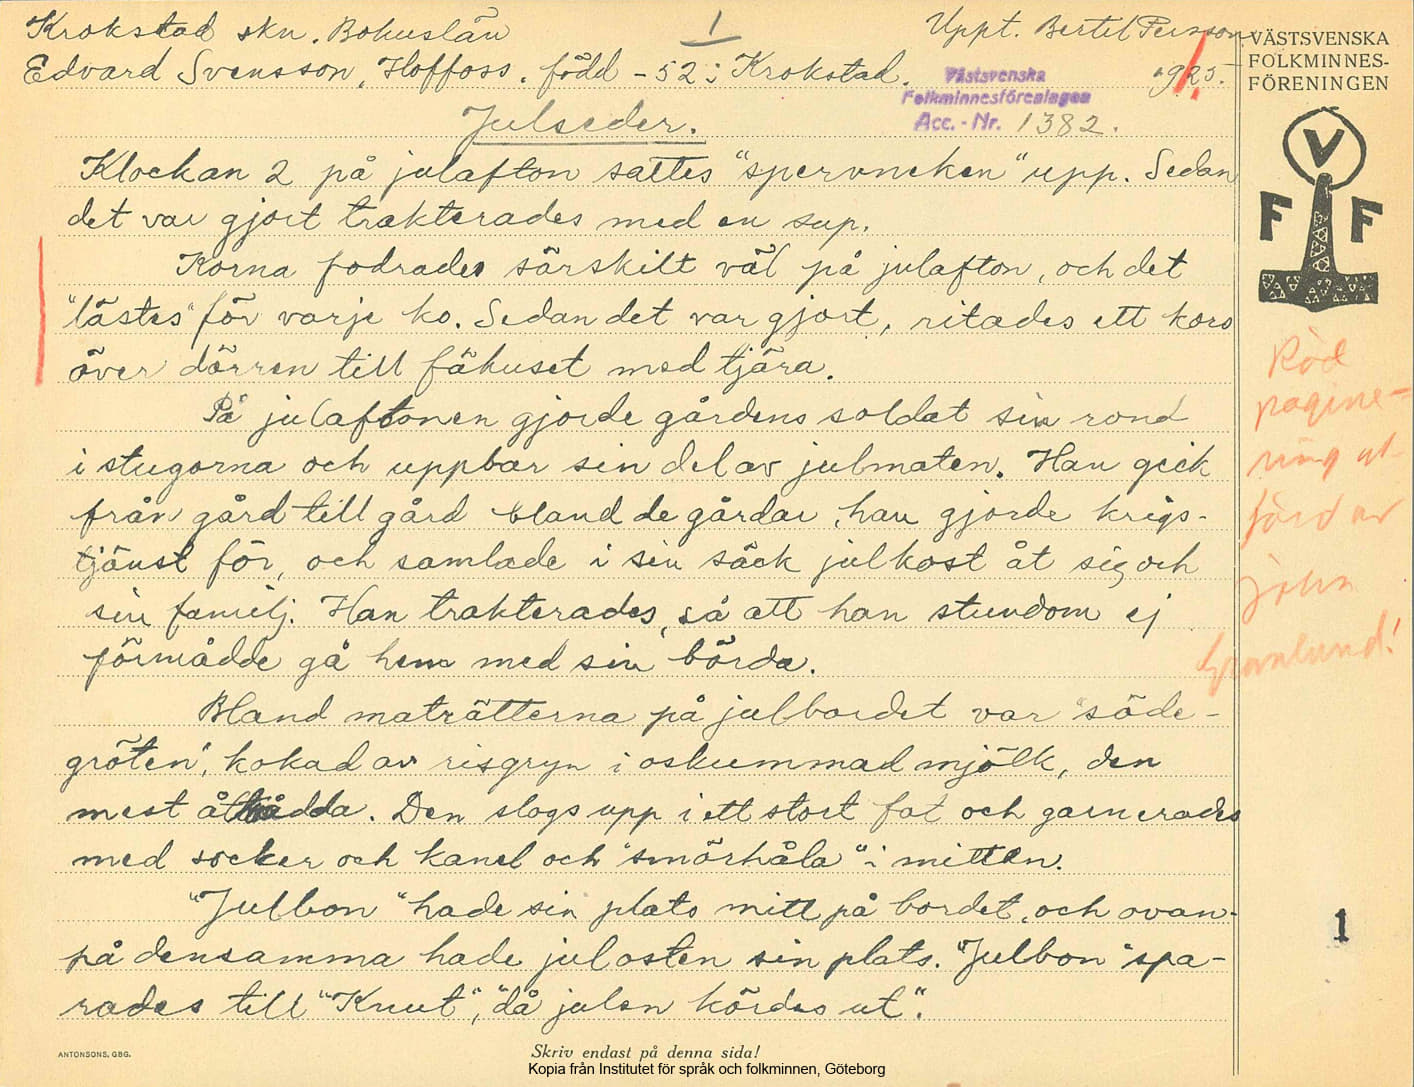 Krokstad skn. Bohuslän
1
Uppt. Bertel Persson
Edvard Svensson, Hoffoss. född -52 i Krokstad.
1925.
Västsvenska
Folkminnesföreningen
Acc. - Nr. 1382.
Julseder.
Klockan 2 på julafton sattes "spervneken" upp. Sedan
det var gjort trakterades med en sup.
Korna fodrades särskilt väl på julafton, och det
"lästes" för varje ko. Sedan det var gjort, ritades ett kors
över dörren till fähuset med tjära.
På julaftonen gjorde gårdens soldat sin rond
i stugorna och uppbar sin del av julmaten. Han gick
från gård till gård bland de gårdar, han gjorde krigs-
tjänst för, och samlade i sin säck julkost åt sig och
sin familj. Han trakterades, så att han stundom ej
förmådde gå hem med sin börda.
Bland maträtterna på julbordet var "söde-
gröten", kokad av risgryn i oskummad mjölk, den
mest åtrådda. Den slogs upp i ett stort fat och garnerades
med socker och kanel och "smörhåla" i mitten.
"Julbon" hade sin plats mitt på bordet, och ovan-
på densamma hade julosten sin plats. "Julbon" spa-
rades till "Knut", "då julen kördes ut".
ANTONSONS, GBG.
Skriv endast på denna sida!
Kopia från Institutet för språk och folkminnen, Göteborg
VÄSTSVENSKA
FOLKMINNES-
FÖRENINGEN
V
F F
Röd
pagine-
ring ut-
förd av
John
Granlund!
1